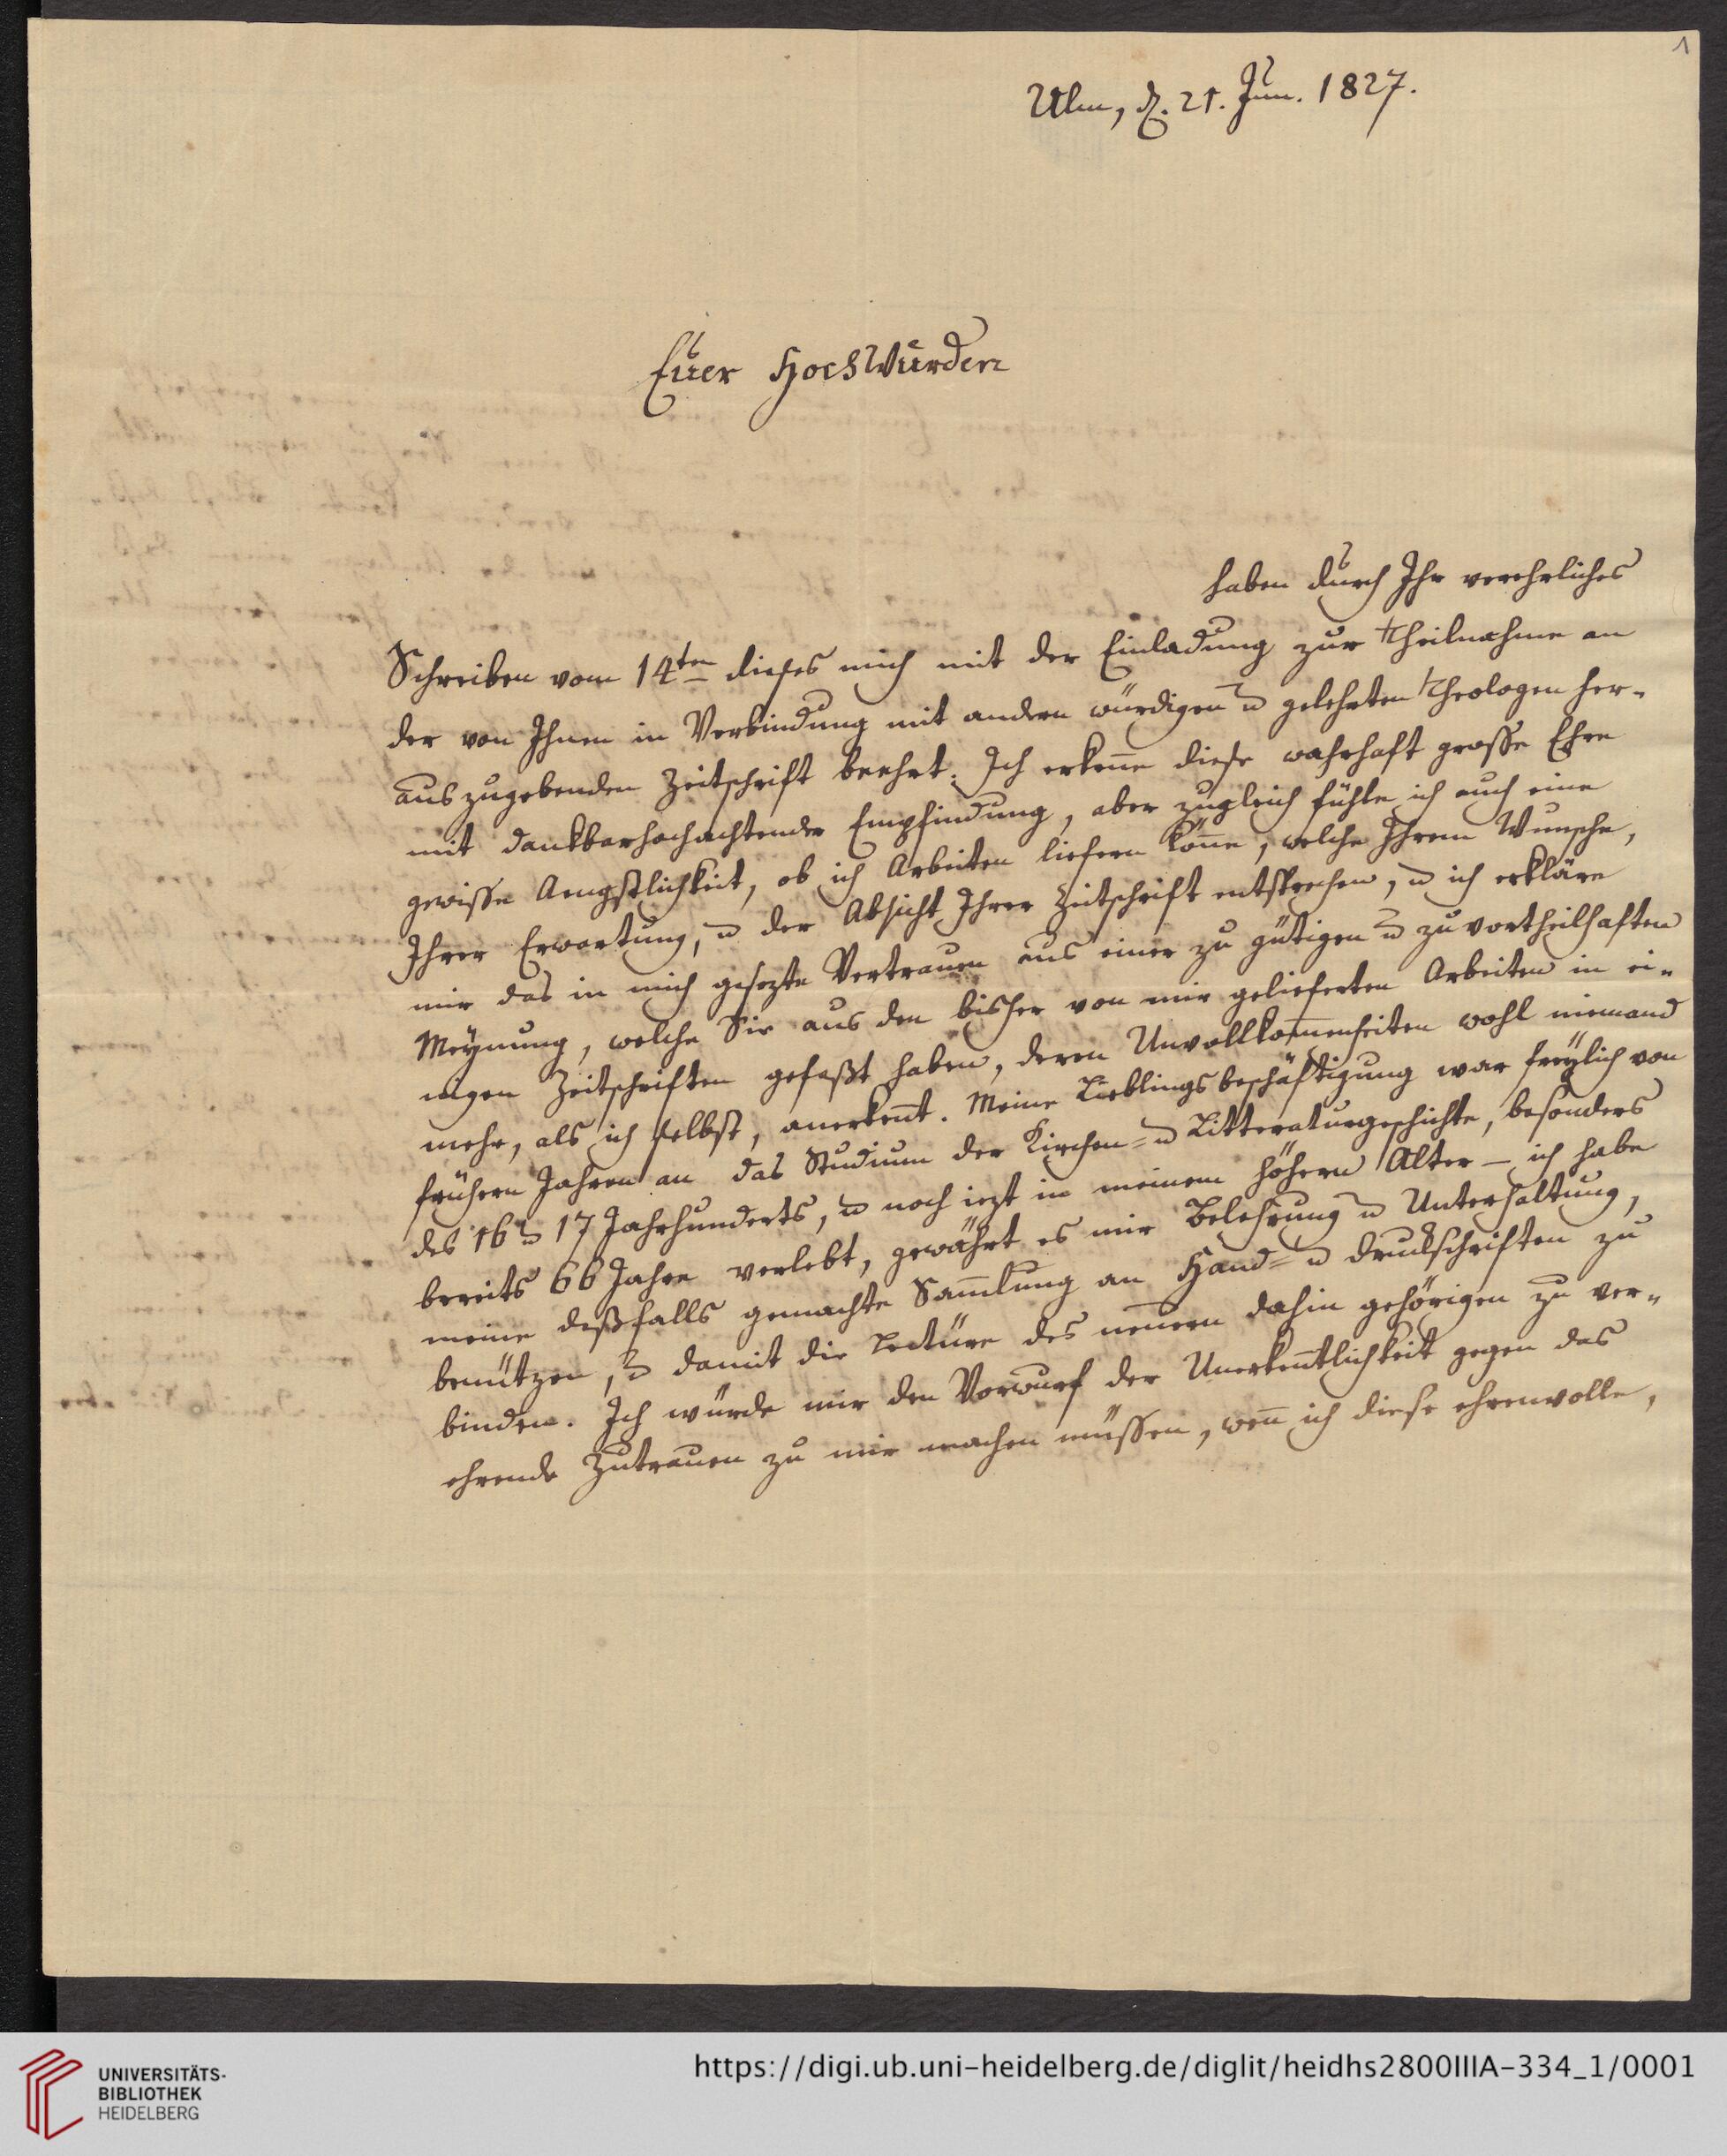 1
Ulm, d. 21. Jun. 1827.
Euer HochWürden
haben durch Ihr verehrliches
Schreiben vom 14ten dieses mich mit der Einladung zur Theilnahme an
der von Ihnen in Verbindung mit andern würdigen u gelehrten Theologen her-
auszugebenden Zeitschrift beehrt. Ich erken̄e diese wahrhaft grosse Ehre
mit dankbarhochachtender Empfindung, aber zugleich fühle ich auch eine
gewisse Aengstlichkeit, ob ich Arbeiten liefern kön̄e, welche Ihrem Wunsche,
Ihrer Erwartung, u der Absicht Ihrer Zeitschrift entsprechen, u ich erkläre
mir das in mich gesezte Vertrauen aus einer zu gütigen u zu vortheilhaften
Meÿnung, welche Sie aus den bisher von mir gelieferten Arbeiten in ei-
nigen Zeitschriften gefaßt haben, deren Unvollkom̄enheiten wohl niemand
mehr, als ich selbst, anerken̄t. Meine Lieblingsbeschäftigung war freÿlich von
frühern Jahren an das Studium der Kirchen- u Litteraturgeschichte, besonders
des 16 u 17 Jahrhunderts, u noch iezt in meinem höhern Alter – ich habe
bereits 66 Jahre verlebt, gewährt es mir Belehrung u Unterhaltung,
meine deßfalls gemachte Sam̄lung an Hand- u Drukschriften zu
benützen, u damit die Lectüre des neuern dahin gehörigen zu ver-
binden. Ich würde mir den Vorwurf der Unerken̄tlichkeit gegen das
ehrende Zutrauen zu mir machen müssen, wen̄ ich diese ehrenvolle,
UNIVERSITÄTS-
BIBLIOTHEK
HEIDELBERG
https://digi.ub.uni-heidelberg.de/diglit/heidhs2800IIIA-334_1/0001